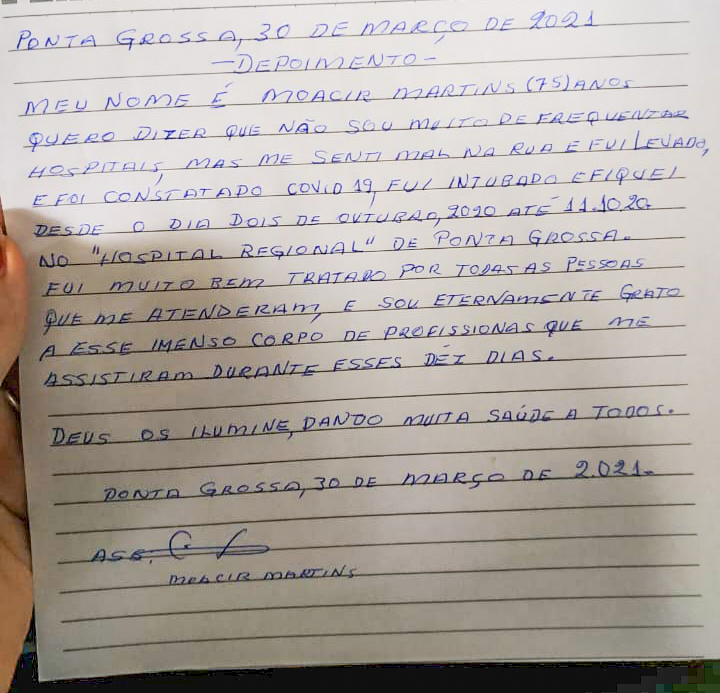 PONTA GROSSA, 30 DE MARÇO DE 2021
— DEPOIMENTO —
MEU NOME É MOACIR MARTINS (75) ANOS
QUERO DIZER QUE NÃO SOU MUITO DE FREQUENTAR
HOSPITAIS, MAS ME SENTI MAL NA RUA E FUI LEVADO,
E FOI CONSTATADO COVID 19, FUI INTUBADO E FIQUEI
DESDE O DIA DOIS DE OUTUBRO, 2020 ATÉ 11.10 20.
NO "HOSPITAL REGIONAL" DE PONTA GROSSA.
FUI MUITO BEM TRATADO POR TODAS AS PESSOAS
QUE ME ATENDERAM, E SOU ETERNAMENTE GRATO
A ESSE IMENSO CORPO DE PROFISSIONAS QUE ME
ASSISTIRAM DURANTE ESSES DÉZ DIAS.
DEUS OS ILUMINE, DANDO MUITA SAÚDE A TODOS.
PONTA GROSSA, 30 DE MARÇO DE 2.021.
ASS.
MOACIR MARTINS